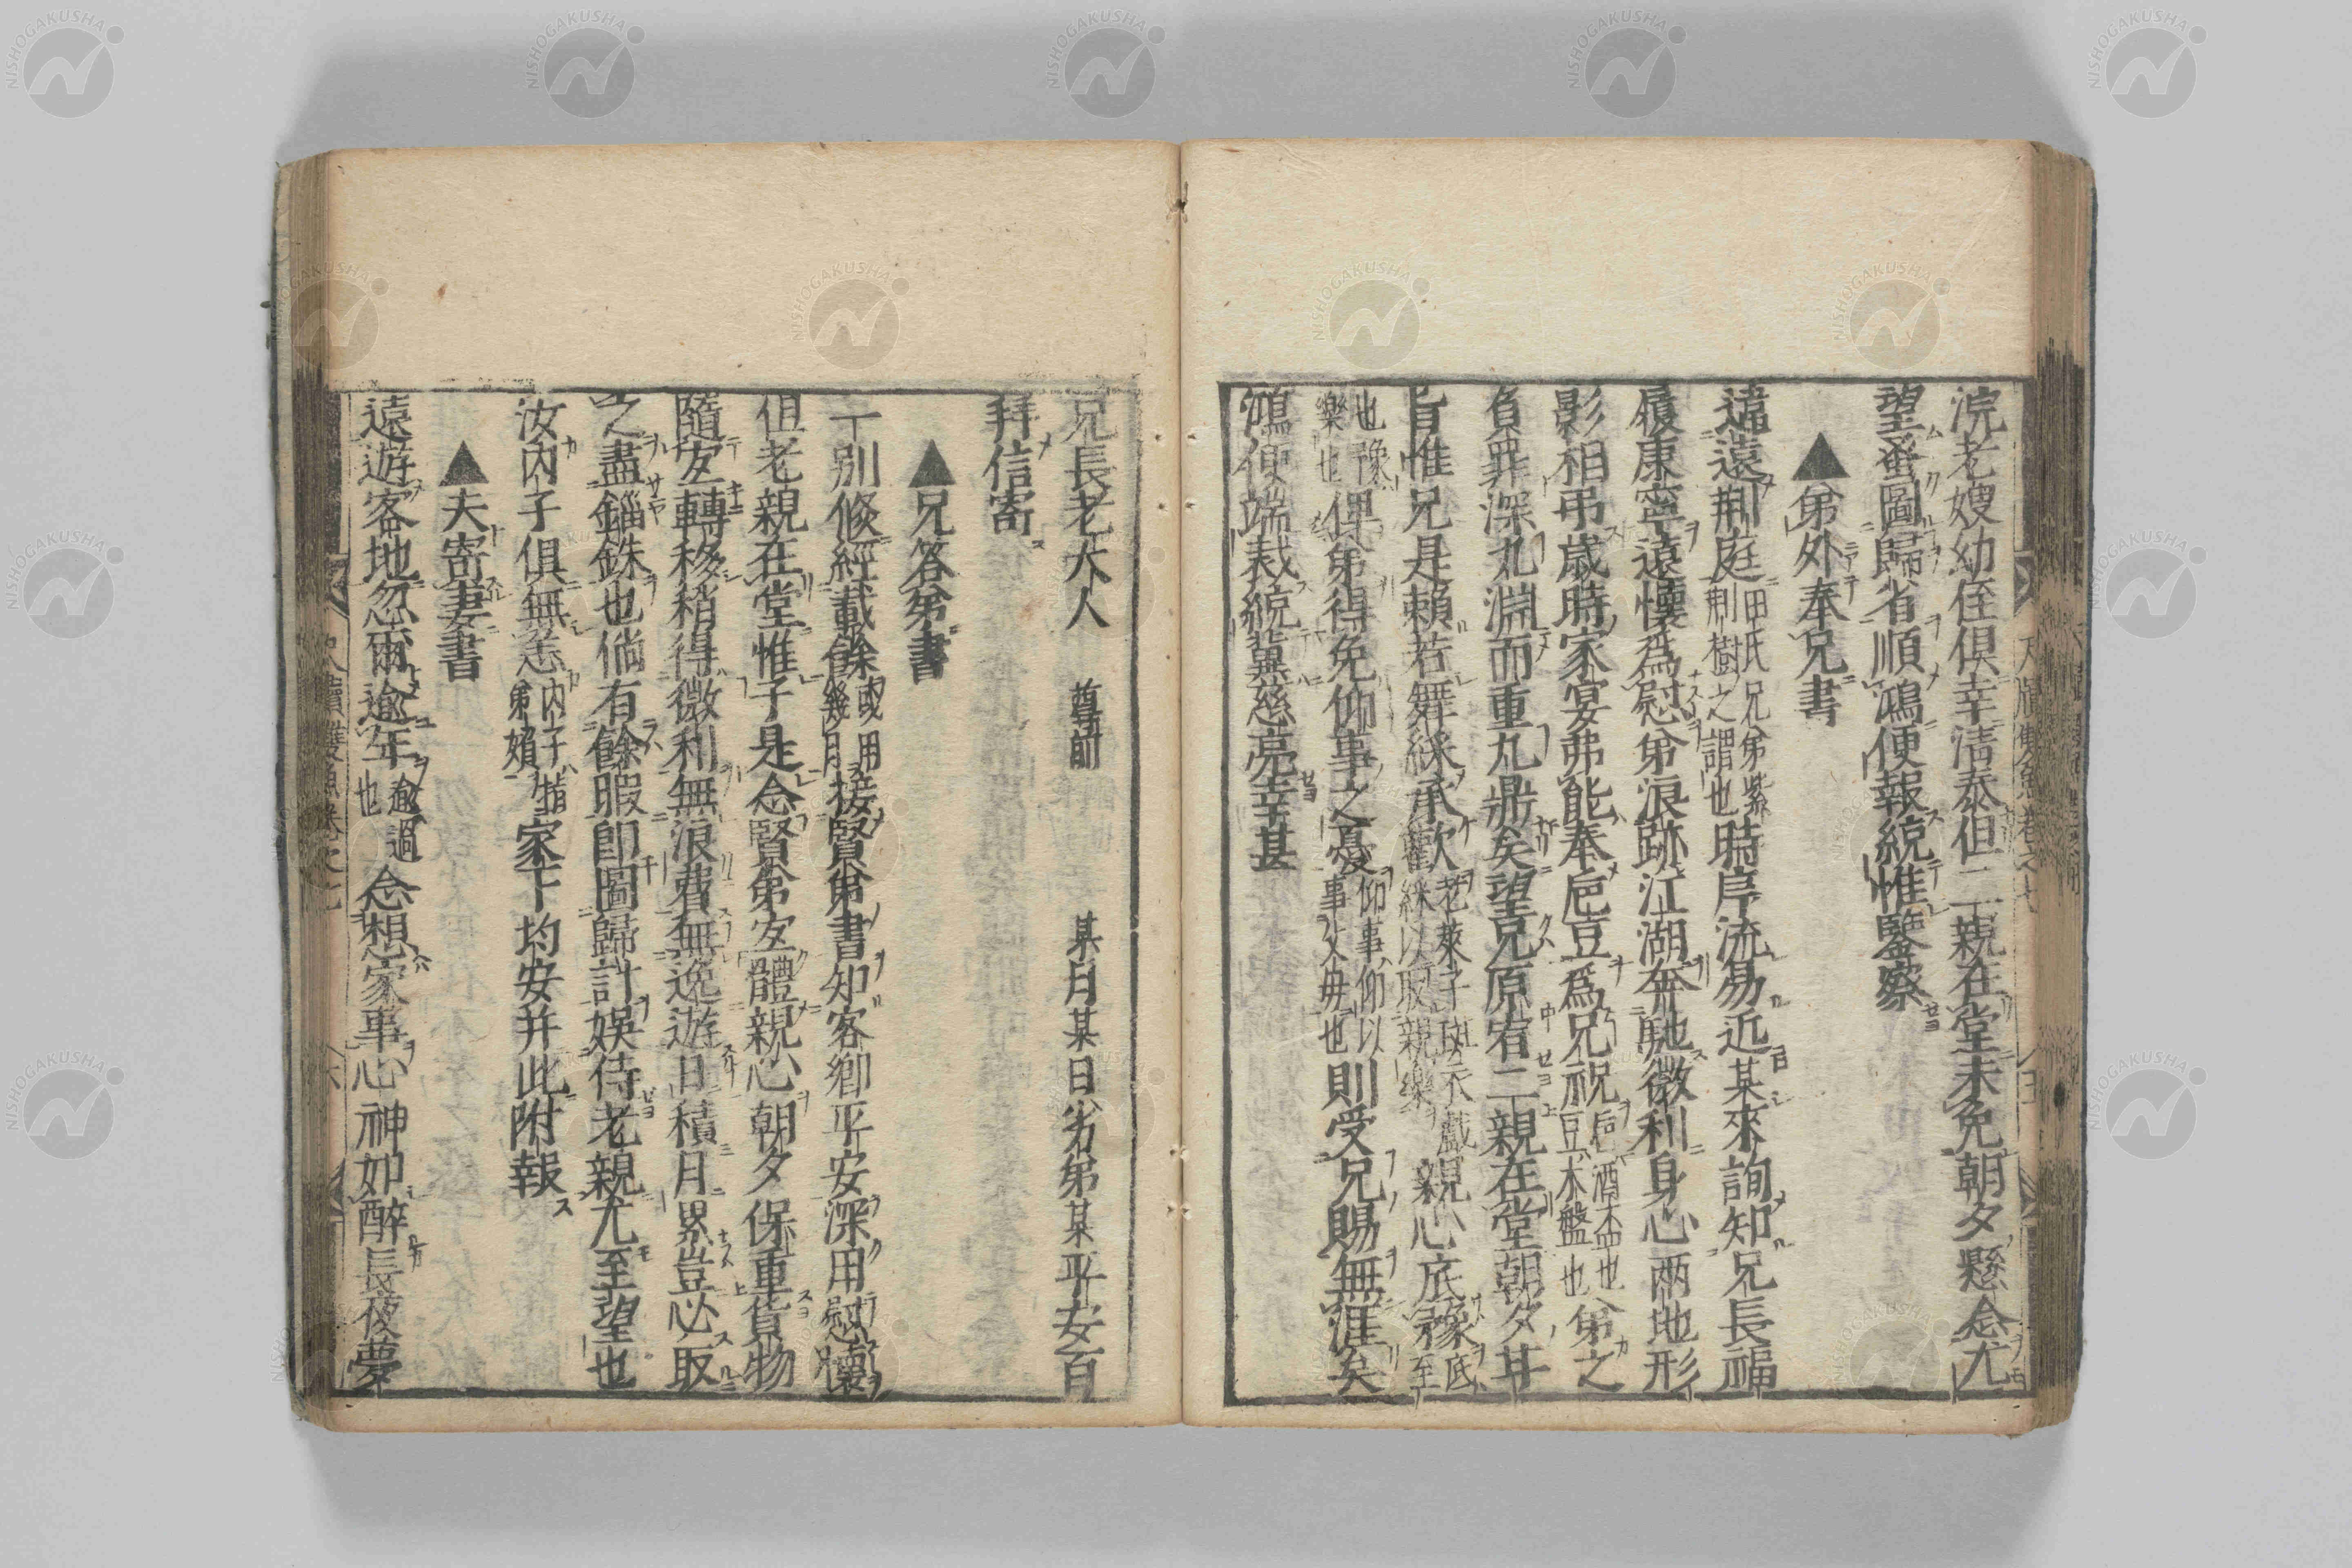 浣老嫂幼侄俱幸清泰但二親在堂未免朝夕懸念尤
望蚤圖歸省順鴻便報統惟鑒察
▲弟外奉兄書
違遠荆庭田氏兄弟紫荆樹之謂也時序流易近某來詢知兄長福
履康寧遠懷爲慰弟浪跡江湖奔馳微利身心兩地形
影相吊歲時家宴弗能奉巵豆爲兄祝巵酒盃也豆木盤也弟之
負罪深九淵而重九鼎矣望兄原宥二親在堂朝夕甘
旨惟兄是賴若舞綵承歡老萊子斑衣戲綵以取親樂親心底豫底至
也豫樂也俾弟得免仰事之憂仰事仰以事父母也則受兄賜無涯矣
鴻便端裁統冀慈亮幸甚
兄長老大人 尊前 某月某日劣弟某平安百
拜信寄
▲兄答弟書
一別倐經載餘或用幾月接賢弟書知客鄉平安深用慰懷
但老親在堂惟子是念賢弟安體親心朝夕保重貨物
隨宜轉移稍得微利無浪費無逸遊日積月累豈必取
之盡錙銖也倘有餘暇即圖歸計娛侍老親尤至望也
汝內子俱無恙內子指弟婦家下均安并此附報
▲夫寄妻書
遠遊客地忽爾逾年逾過也念想家事心神如醉長夜夢